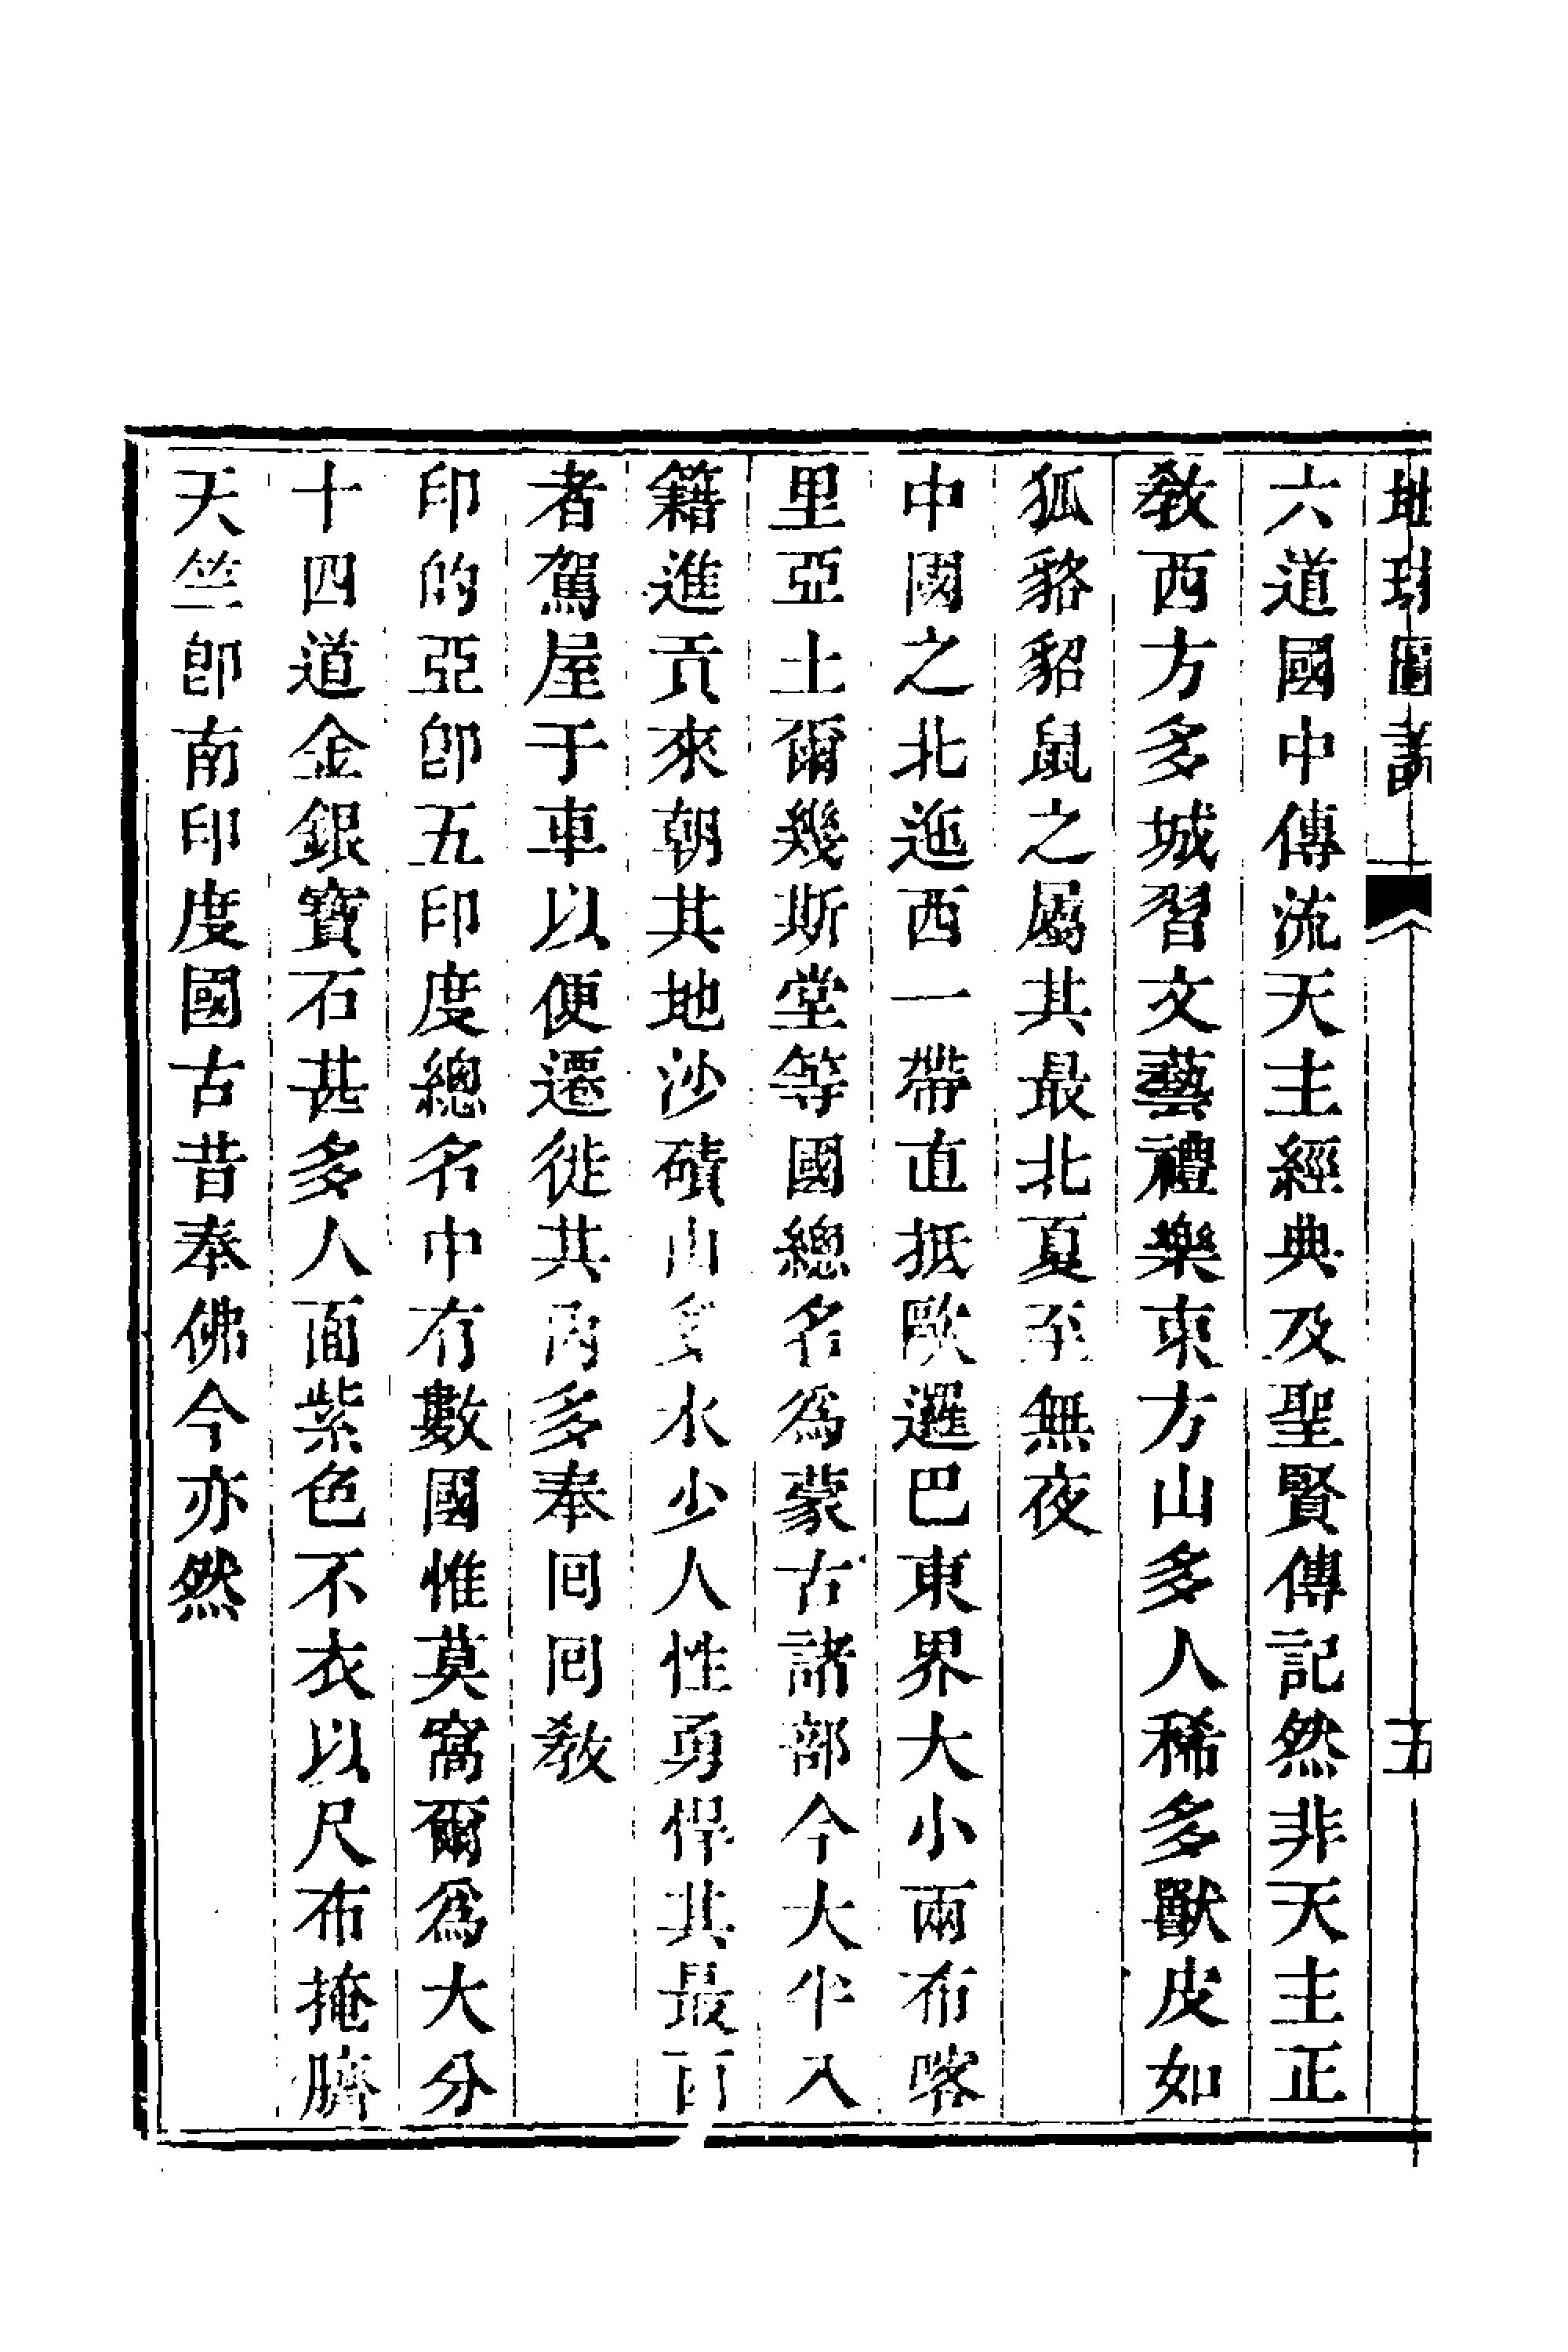 地球圖說
五
六道國中傳流天主經典及聖賢傳記然非天主正
敎西方多城習文藝禮樂東方山多人稀多獸皮如
狐貉貂鼠之屬其最北夏至無夜
中國之北迤西一帶直抵歐邏巴東界大小兩布喀
里亞土爾幾斯堂等國總名爲蒙古諸部今大半入
籍進貢來朝其地沙磧山多水少人性勇悍其最西
者駕屋于車以便遷徙其內多奉回回敎
印的亞卽五印度總名中有數國惟莫窩爾爲大分
十四道金銀寶石甚多人面紫色不衣以尺布掩臍
天竺卽南印度國古昔奉佛今亦然